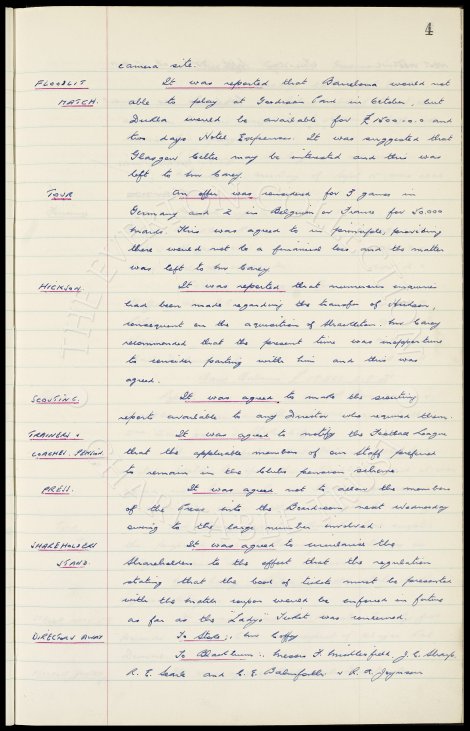 4
camera site.
FLOODLIT It was reported that Barcelona would not
MATCH. able to play at Goodison Park in October, but
Dukla would be available for £1500.0.0 and
two days Hotel Expenses. It was suggested that
Glasgow Celtic may be interested and this was
left to Mr Carey.
TOUR An offer was considered for 3 games in
Germany and 2 in Belgium or France for 50,000
marks. This was agreed to in principle, providing
there would not be a financial loss and the matter
was left to Mr Carey
HICKSON. It was reported that numerous enquiries
had been made regarding the transfer of Hickson,
consequent on the acquisition of Mr Carey
recommended that the present time was inopportune
to consider parting with him and this was
agreed.
SCOUTING. It was agreed to make the scouting
reports available to any Director who required them.
TRAINERS & It was agreed to notify the Football League
COACHES PENSION that the applicable members of our Staff preferred
to remain in the Clubs pension scheme.
PRESS. It was agreed not to allow the members
of the Press into the Boardroom next Wednesday
owing to the large number involved.
SHAREHOLDERS It was agreed to circularise the
STAND. Shareholders to the effect that the regulation
stating that the book of tickets must be presented
with the match coupon would be enforced in future
as far as the "Ladys" Ticket was concerned.
DIRECTORS AWAY To Stoke:. Mr Coffey
To Blackburn:. Messrs F. Micklesfield, J. C. Sharp,
R. E. Searle and C. E. Balmforth & R. A. Joynson